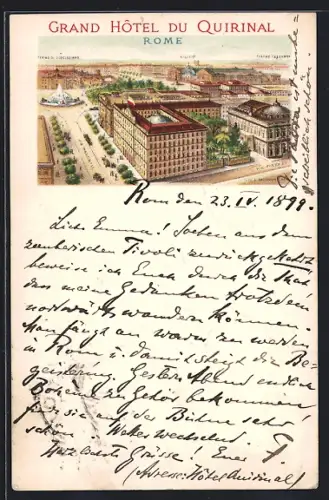 GRAND HÔTEL DU QUIRINAL
ROME
Rom den 23. IV. 1899.
Liebe Emma! Soeben aus dem
zauberischen Tivoli zurückgekehrt
beweise ich Euch durch die That
dass meine Gedanken trotzdem
nordwärts wandern können.
Man fängt an warm zu werden
in Rom u. damit steigt die Be-
geisterung. Gestern Abend
zu Gehör bekommen,
für sie auf der Bühne sehr
schön. Wetter wechselnd.
Herzlichste Grüsse! Euer F.
(Adresse: Hôtel Quirinal)